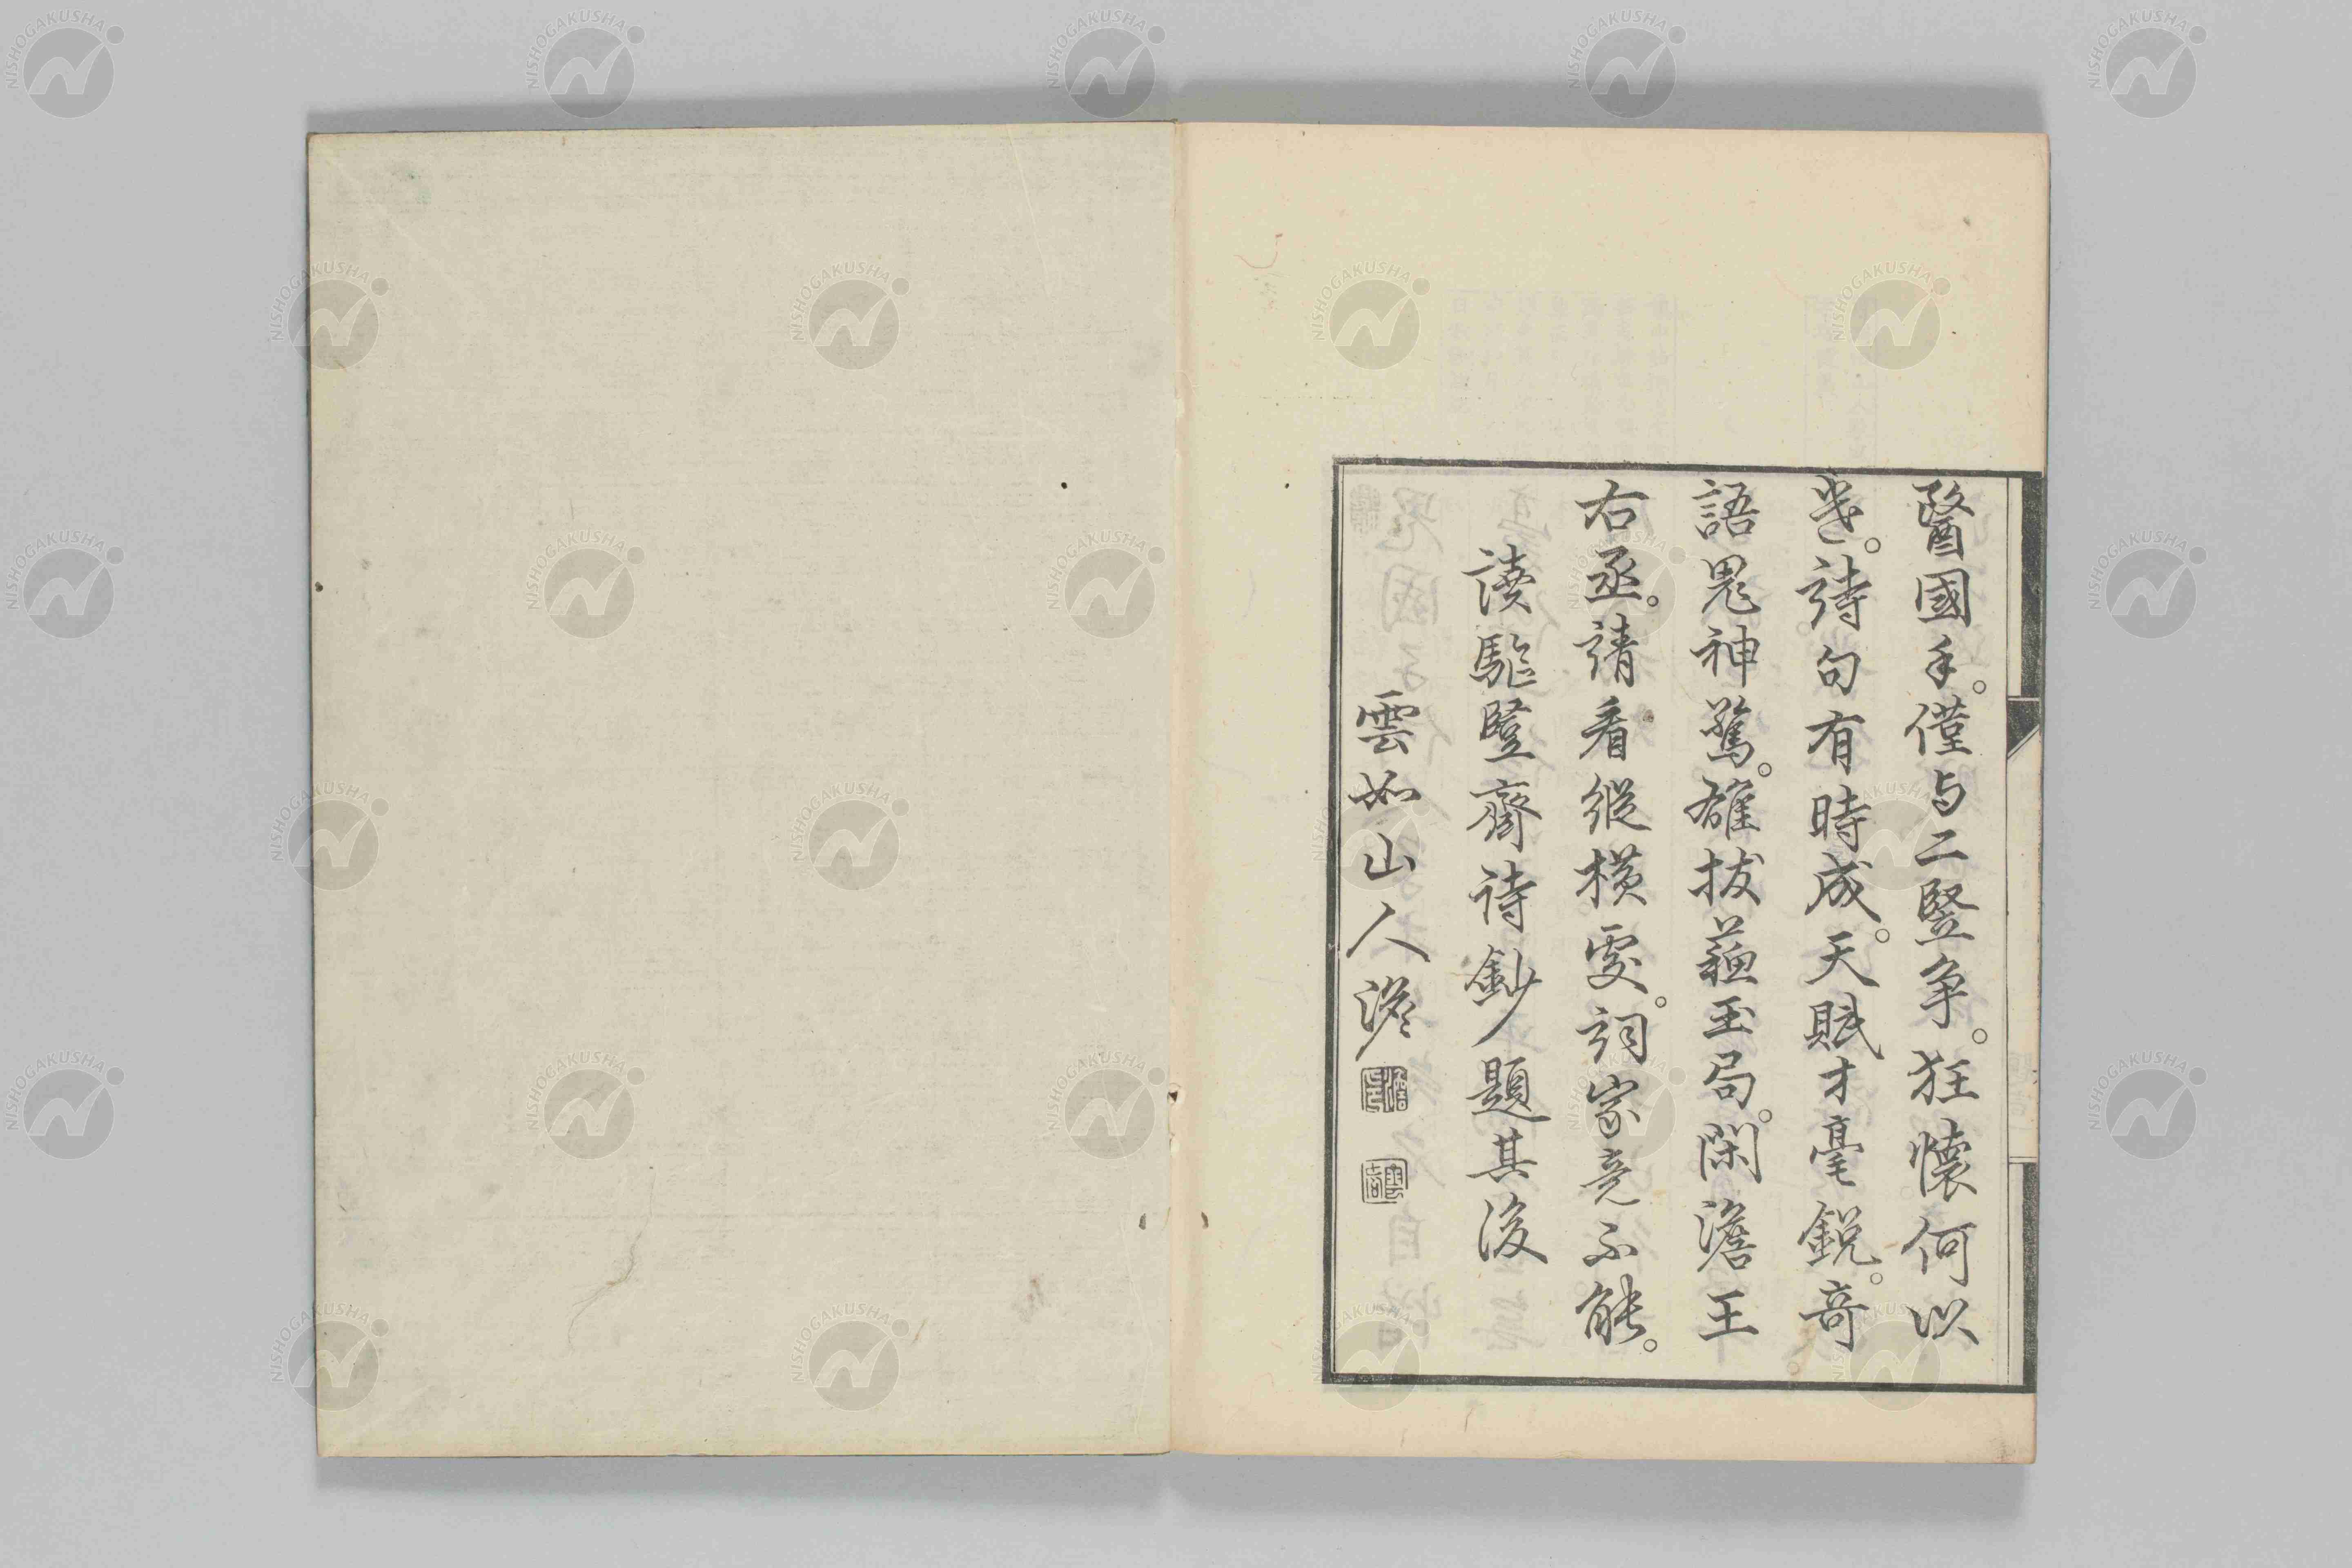 醫國手。僅与二竪争。狂懷何以
患。詩句有時成。天賦才毫鋭。奇
語鬼神驚。雄拔蘓玉局。閑澹王
右丞。請看縱横處。詞家竟不能。
讀駈竪齋詩鈔題其後
雲如山人澹